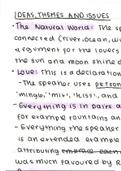 IDEAS, THEMES AND ISSUES
• The Natural World: The s
connected (river, ocean, wi
argument for the lovers
the sun and moon shine d
• Love: this is a declaration
- The speaker uses person
'mingle', 'mix', 'kiss', and
- Everything is in pairs a
for example fountains an
- Everything the speaker
is an extended example
attributing
was much favoured by R